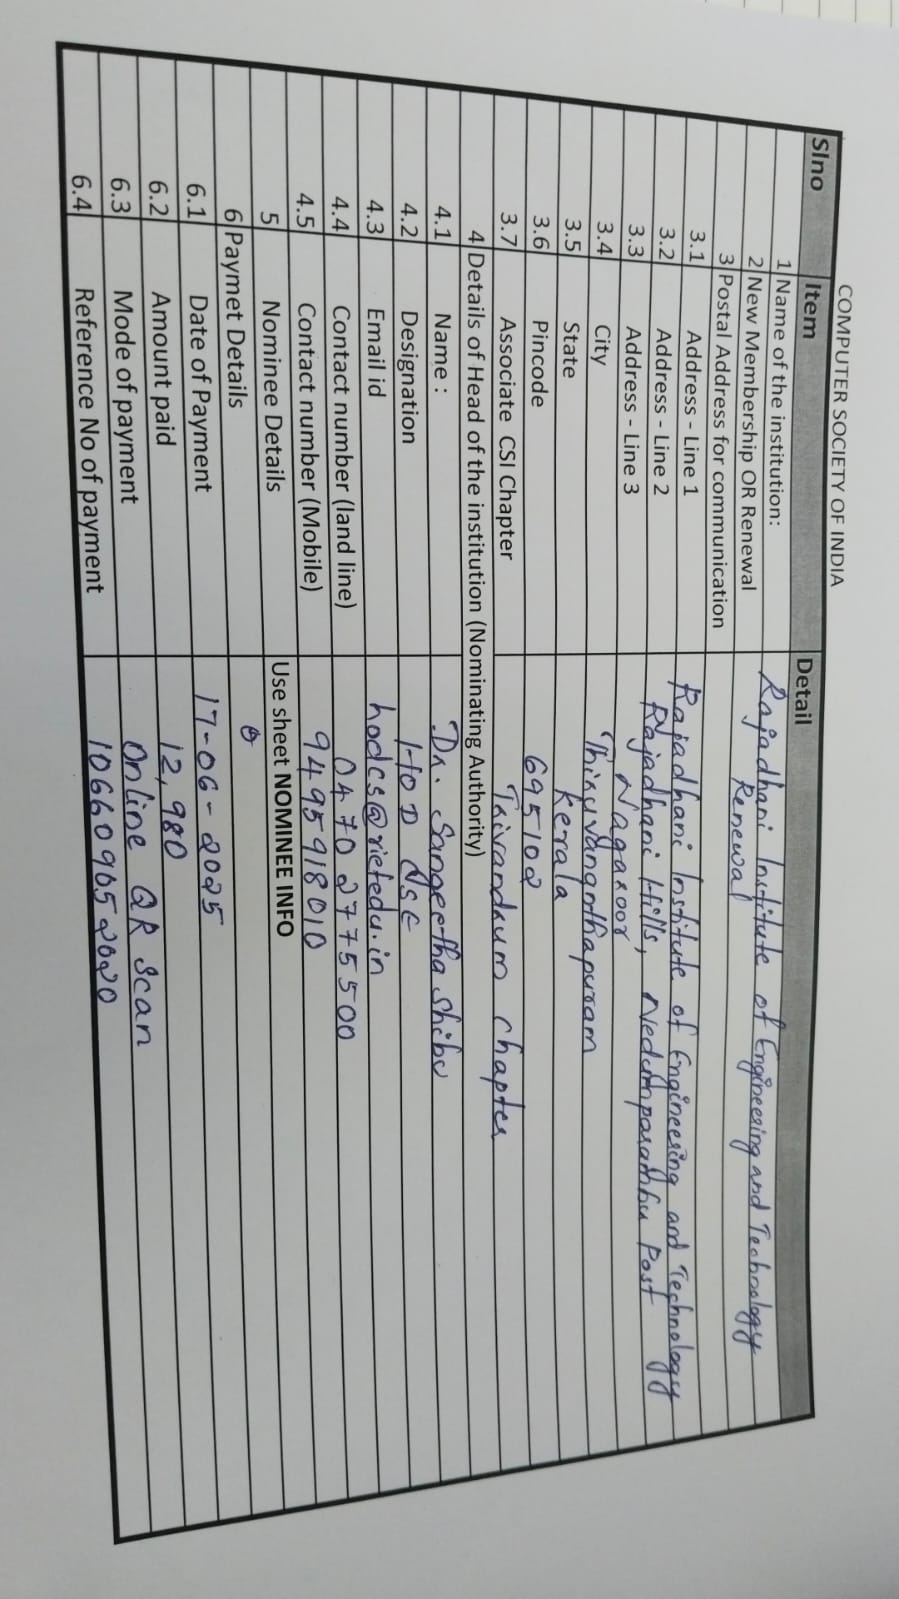 COMPUTER SOCIETY OF INDIA
Slno Item Detail
1 Name of the institution: Rajadhani Institute of Engineering and Technology
2 New Membership OR Renewal Renewal
3 Postal Address for communication
3.1 Address - Line 1 Rajadhani Institute of Engineering and Technology
3.2 Address - Line 2 Rajadhani Hills, Nedumparambu Post
3.3 Address - Line 3 Nagaroor
3.4 City Thiruvananthapuram
3.5 State Kerala
3.6 Pincode 695102
3.7 Associate CSI Chapter Trivandrum Chapter
4 Details of Head of the institution (Nominating Authority)
4.1 Name : Dr. Sangeetha Shibu
4.2 Designation HOD CSE
4.3 Email id hodcs@rietedu.in
4.4 Contact number (land line) 0470 2775500
4.5 Contact number (Mobile) 9495918010
5 Nominee Details Use sheet NOMINEE INFO
6 Paymet Details
6.1 Date of Payment 17-06-2025
6.2 Amount paid 12,980
6.3 Mode of payment Online QR Scan
6.4 Reference No of payment 106609052020